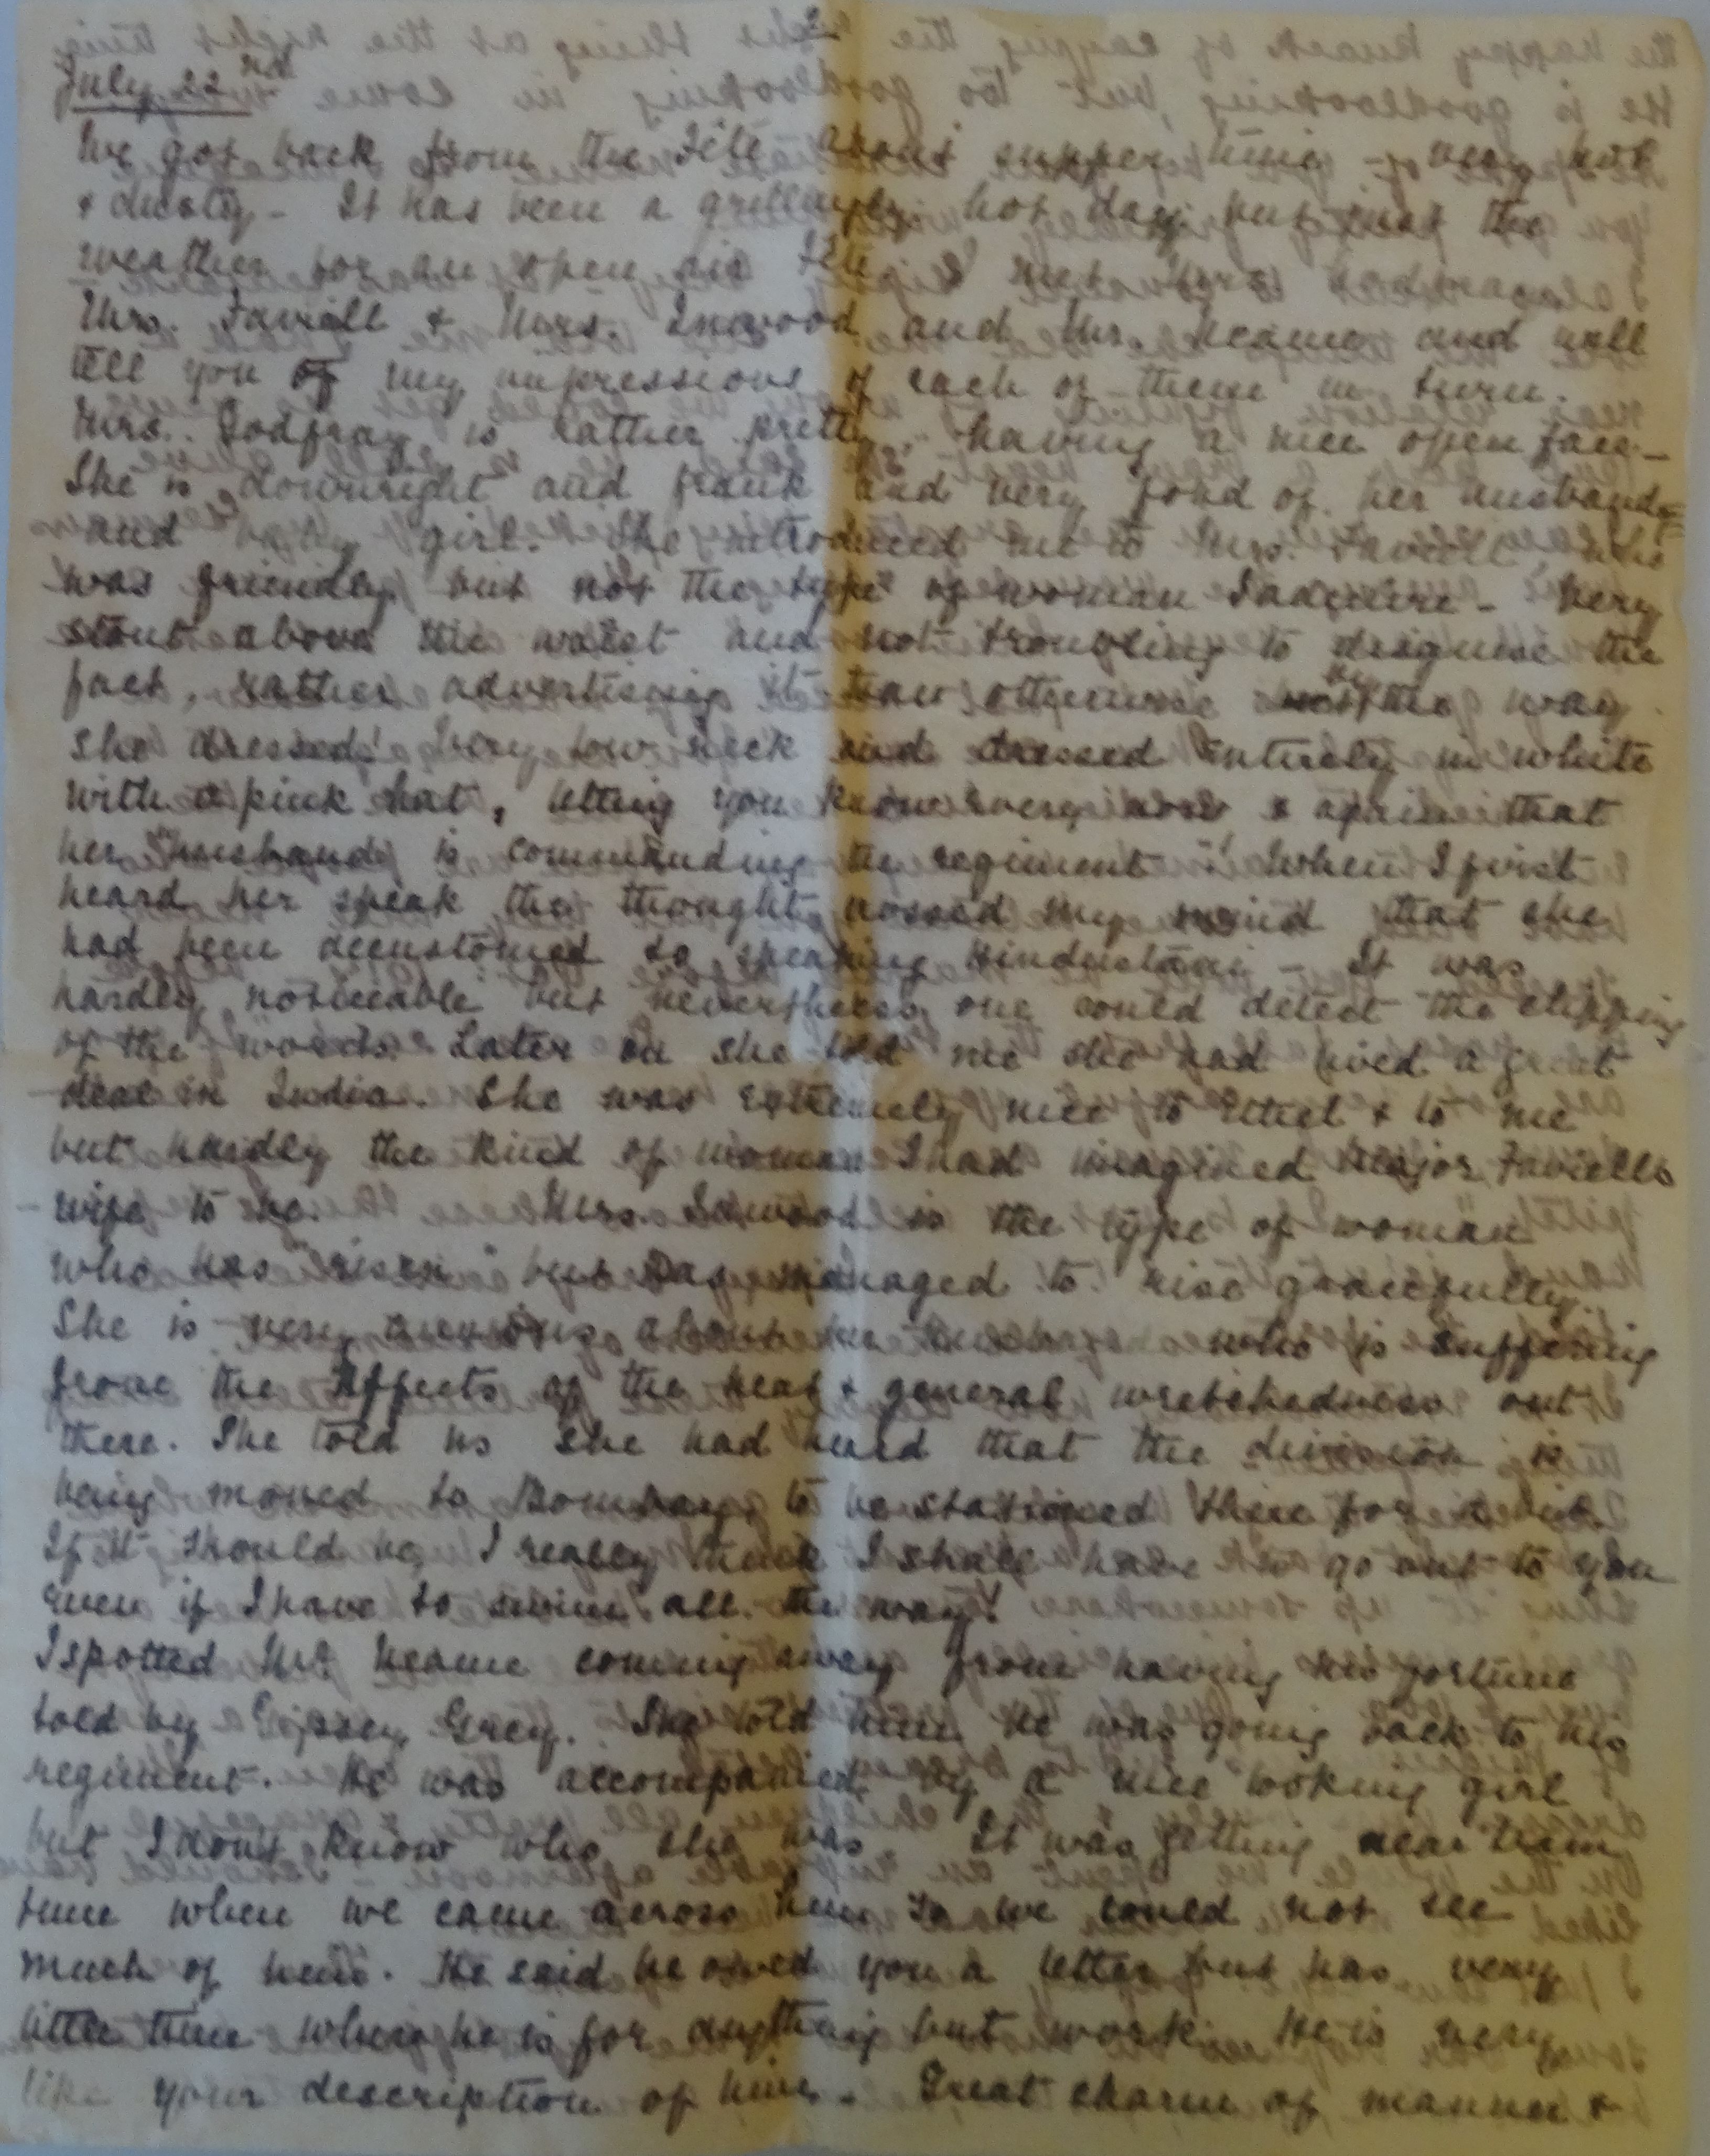 July 22nd
We got back from the Fête about supper time - very hot
& dusty - It has been a grillingly hot day but just the
weather for an open air Fête I met Mrs. Godfray
Mrs. Faviell & Mrs. Inwood and Mr. Neame and will
tell you of my impressions of each of them in turn.
Mrs. Godfray is rather pretty, having a nice open face -
She is downright and frank and very fond of her husband
and baby girl. She introduced me to Mrs. Faviell, who
was friendly but not the type of woman I admire - Very
stout above the waist and not troubling to disguise the
fact, rather advertising it than otherwise by the way
she dressed! Very low neck and dressed entirely in white
with a pink hat, letting you know every now & again that
her "husband is commanding the regiment"! When I first
heard her speak the thought crossed my mind that she
had been accustomed to speaking Hindustani - It was
hardly noticeable but nevertheless one could detect the clipping
of the words. Later on she told me she had lived a great
deal in India. She was extremely nice to Ethel & to me
but hardly the kind of woman I had imagined Major Faviells
wife to be. Mrs. Inwood is the type of woman
who has "risen" but has managed to rise gracefully.
She is very anxious about her husband who is suffering
from the effects of the heat & general wretchedness out
there. She told us she had heard that the division is
being moved to Bombay, to be stationed there for a bit.
If it should be, I really think I shall have to go out to you
even if I have to swim all the way!
I spotted Mr Neame coming away from having his fortune
told by Gipsey Grey. She told him he was going back to his
regiment. He was accompanied by a nice looking girl
but I don't know who she was. It was getting near tram
time when we came across him so we could not see
much of him. He said he owed you a letter but has very
little time where he is for anything but work. He is very
like your description of him. Great charm of manner &